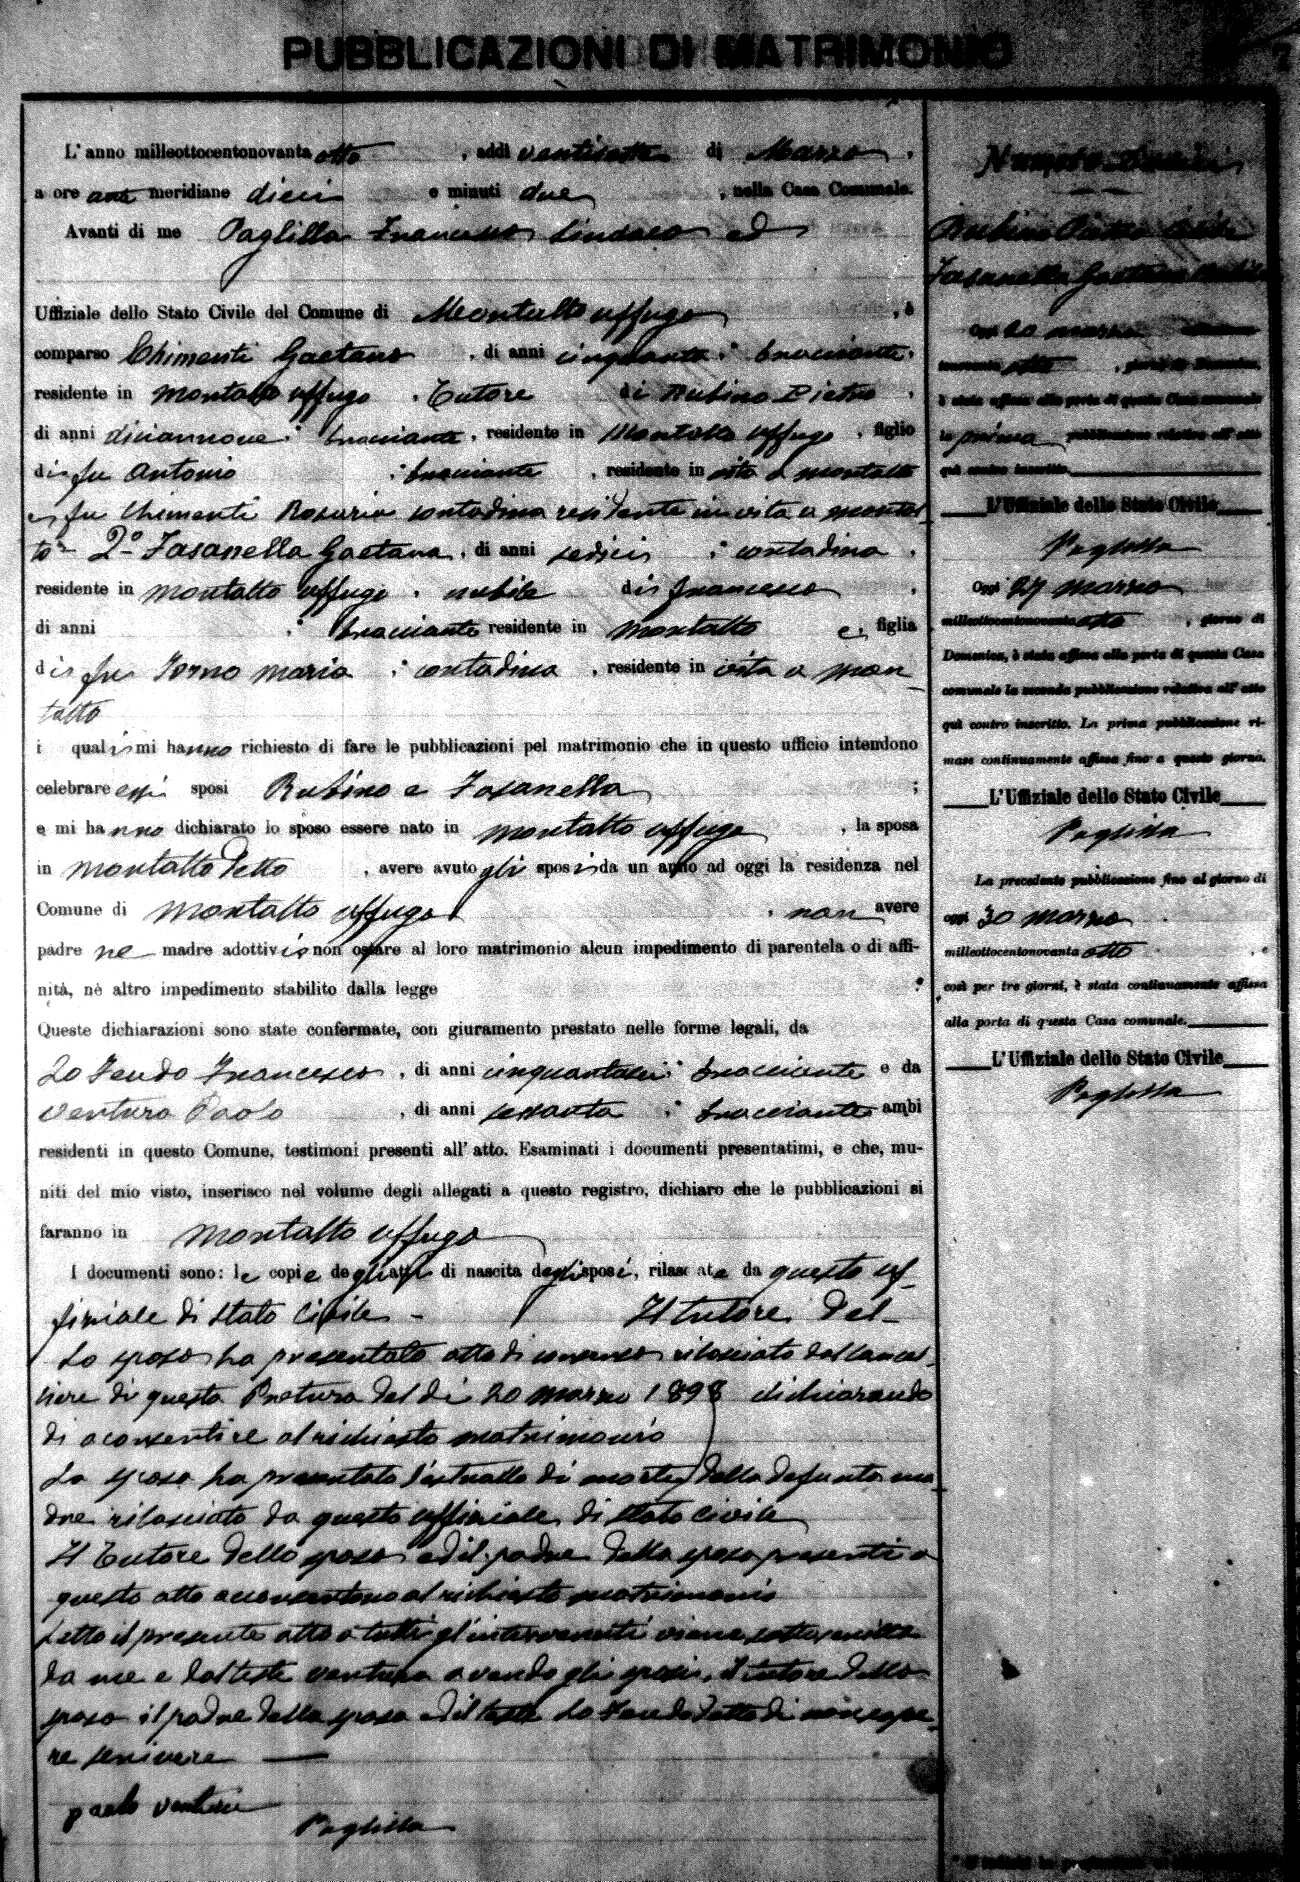 PUBBLICAZIONI DI MATRIMONIO
L'anno milleottocentonovanta otto, addì ventisette di Marzo,
a ore ante meridiane dieci e minuti due, nella Casa Comunale.
Avanti di me Paglilla Francesco Sindaco ed
Uffiziale dello Stato Civile del Comune di Montalto uffugo, è
comparso Chimenti Gaetano, di anni cinquanta, bracciante,
residente in Montalto uffugo, Tutore di Rubino Pietro,
di anni diciannove, bracciante, residente in Montalto uffugo, figlio
di fu Antonio, bracciante, residente in vita a Montalto
e fu Chimenti Rosaria contadina residente in vita a Montal-
to 2º Fasanella Gaetana, di anni sedici, contadina,
residente in Montalto uffugo, nubile di Francesco,
di anni bracciante residente in Montalto e, figlia
di fu Iorno Maria, contadina, residente in vita a Mon-
talto
i quali mi hanno richiesto di fare le pubblicazioni pel matrimonio che in questo ufficio intendono
celebrare essi sposi Rubino e Fasanella;
e mi hanno dichiarato lo sposo essere nato in Montalto uffugo, la sposa
in Montalto detto, avere avuto gli sposi da un anno ad oggi la residenza nel
Comune di Montalto uffugo, non avere
padre ne madre adottivi e non ostare al loro matrimonio alcun impedimento di parentela o di affi-
nità, nè altro impedimento stabilito dalla legge:
Queste dichiarazioni sono state confermate, con giuramento prestato nelle forme legali, da
Lo Feudo Francesco, di anni cinquantasei, bracciante e da
Ventura Paolo, di anni sessanta, bracciante ambi
residenti in questo Comune, testimoni presenti all'atto. Esaminati i documenti presentatimi, e che, mu-
niti del mio visto, inserisco nel volume degli allegati a questo registro, dichiaro che le pubblicazioni si
faranno in Montalto uffugo
I documenti sono: le copie degli atti di nascita degli sposi, rilasciate da questo uf-
fiziale di stato civile - Il tutore del-
lo sposo ha presentato atto di consenso rilasciato dal cancel-
liere di questa Pretura del dì 20 marzo 1898 dichiarando
di acconsentire al richiesto matrimonio
La sposa ha presentato l'estratto di morte della defunta ma-
dre rilasciato da questo uffiziale di stato civile
Il Tutore dello sposo ed il padre della sposa presenti a
questo atto acconsentono al richiesto matrimonio
Letto il presente atto a tutti gl'intervenuti viene sottoscritto
da me e dal teste Ventura avendo gli sposi, il tutore dello
sposo il padre della sposa ed il teste Lo Feudo detto di non sape-
re scrivere
paolo ventura
Paglilla
Numero
Rubino Pietro celibe
Fasanella Gaetana nubile
Oggi 20 marzo
otto, giorno di Domenica,
è stata affissa alla porta di questa Casa comunale
la prima pubblicazione relativa all'atto
quì contro inscritto.
L'Uffiziale dello Stato Civile
Paglilla
Oggi 27 marzo
milleottocentonovanta otto, giorno di
Domenica, è stata affissa alla porta di questa Casa
comunale la seconda pubblicazione relativa all'atto
quì contro inscritto. La prima pubblicazione ri-
mase continuamente affissa fino a questo giorno.
L'Uffiziale dello Stato Civile
Paglilla
La precedente pubblicazione fino al giorno di
oggi 30 marzo
milleottocentonovanta otto, e
così per tre giorni, è stata continuamente affissa
alla porta di questa Casa comunale.
L'Uffiziale dello Stato Civile
Paglilla